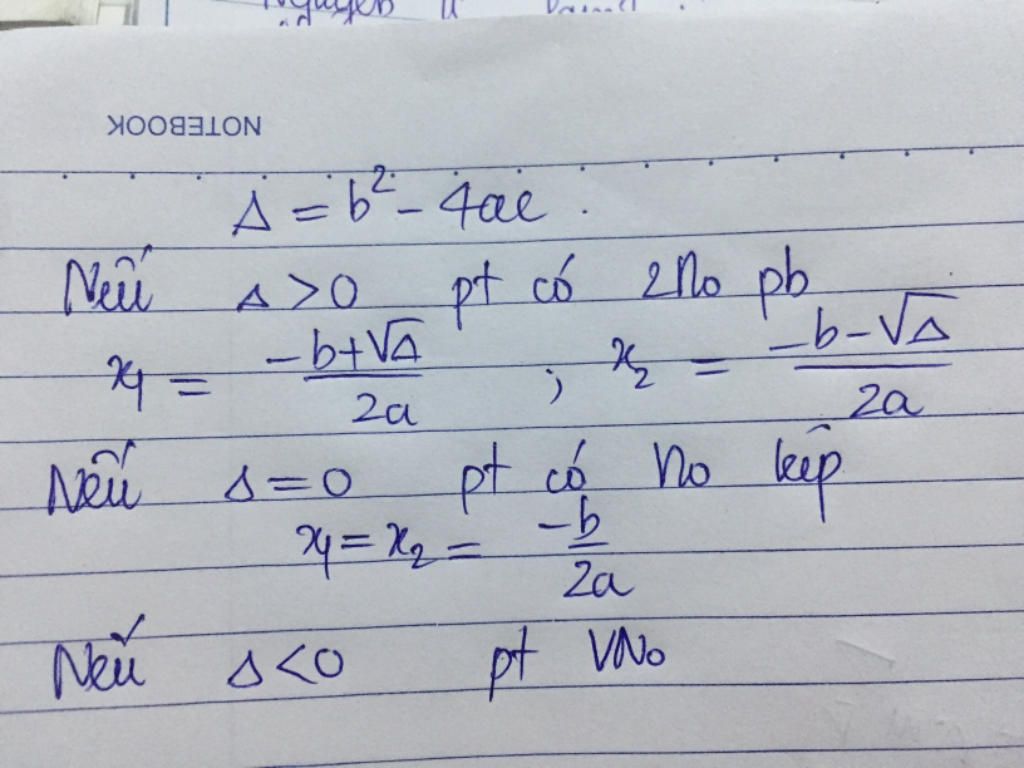 NOTEBOOK
Δ = b² - 4ac.
Nếu Δ > 0 pt có 2 No pb
x₁ = (-b+√Δ)/2a ; x₂ = (-b-√Δ)/2a
Nếu Δ = 0 pt có No kép
x₁ = x₂ = -b/2a
Nếu Δ < 0 pt VNo